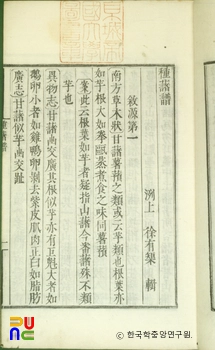 種藷譜
洌上 徐有榘 輯
敘源第一
南方草木狀甘藷薯蕷之類或云芋類也根葉亦
如芋根大如拳甌蒸煮食之味同薯蕷
案此云根葉如芋者疑指山藷今番藷殊不類
芋也
異物志甘藷出交廣其根似芋亦有巨魁大者如
鵝卵小者如雞鴨卵剝去紫皮肌肉正白如脂肪
廣志甘藷似芋出交趾
種藷譜
一
ⓒ 한국학중앙연구원.